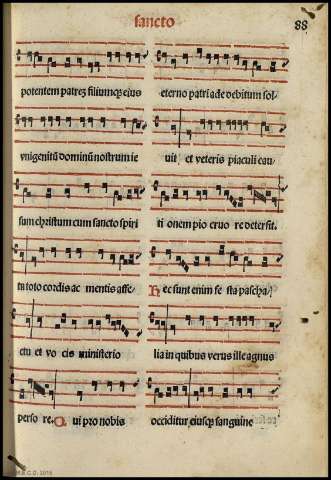 sancto
88
potentem patrez filiumqz eius
vnigenitũ dominũ nostrum ie
sum christum cum sancto spiri
tu toto cordis ac mentis affe/
ctu et vo cis ministerio
perso re. Q ui pro nobis
eterno patri ade debitum sol/
uit et veteris piaculi cau/
ti onem pio cruo re detersit.
H ec sunt enim fe sta pascha/
lia in quibus verus ille agnus
occiditur eiusqz sanguine